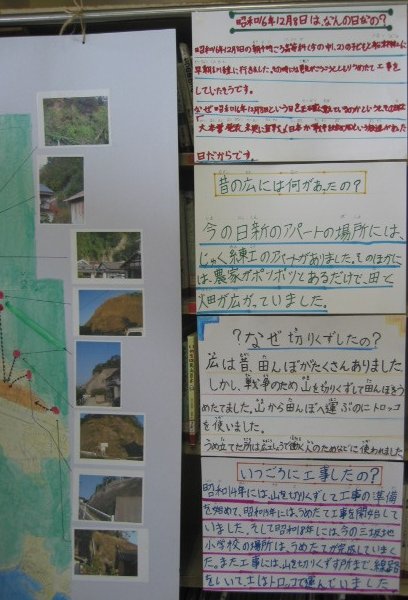 昭和16年12月8日は、なんの日なの?
早朝
していたそうです。
なぜ昭和16年12月8日という日を
日だからです。
昔の広には何があったの?
今の日新のアパートの場所には、
じゅく練工のアパートがありました。そのほかに
は、農家がポツポツとあるだけで、田と
畑が広がっていました。
?なぜ切りくずしたの?
広は昔、田んぼがたくさんありました。
しかし、戦争のため山を切りくずして田んぼをう
めたてました。山から田んぼへ運ぶのにトロッコ
を使いました。
うめ立てた所は広工しょうで働く人のためなどに使われました
いつごろに工事したの?
昭和14年には、山を切りくずして工事の準備
を始めて、昭和15年には、うめたて工事を開始して
いました。そして昭和18年には、今の三坂地
小学校の場所は、うめたてが完成していまし
た。また工事には、山を切りくずす所まで、線路
をしいて土はトロッコで運んでいました。